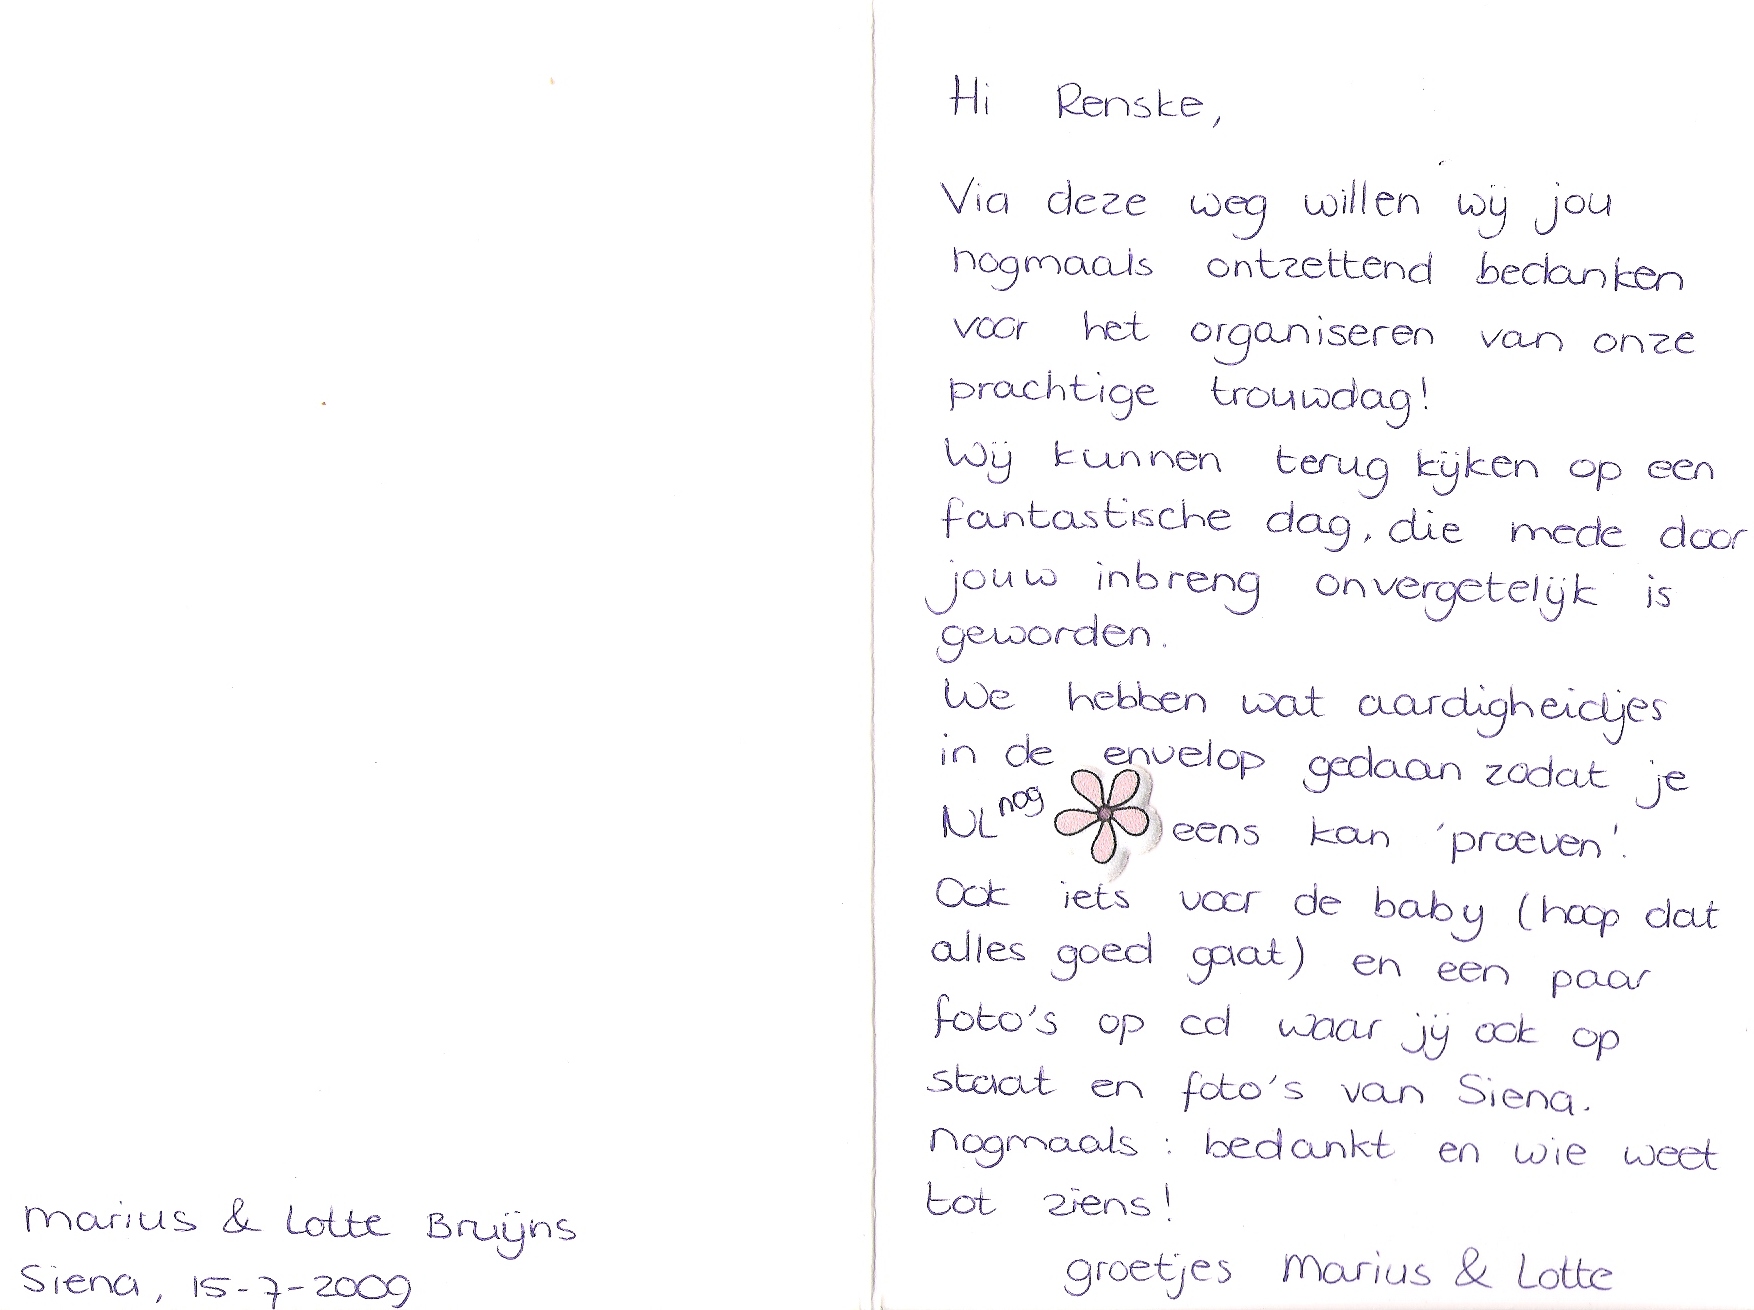 Hi Renske,
Via deze weg willen wij jou
nogmaals ontzettend bedanken
voor het organiseren van onze
prachtige trouwdag!
Wij kunnen terug kijken op een
fantastische dag, die mede door
jouw inbreng onvergetelijk is
geworden.
We hebben wat aardigheidjes
in de envelop gedaan zodat je
NL nog eens kan 'proeven'.
Ook iets voor de baby (hoop dat
alles goed gaat) en een paar
foto's op cd waar jij ook op
staat en foto's van Siena.
Nogmaals: bedankt en wie weet
tot ziens!
groetjes Marius & Lotte
Marius & Lotte Bruijns
Siena, 15-7-2009